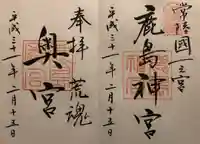 常陸國一之宮
鹿島神宮
平成三十一年二月十五日
奉拝
荒魂
奥宮
平成三十一年二月十五日